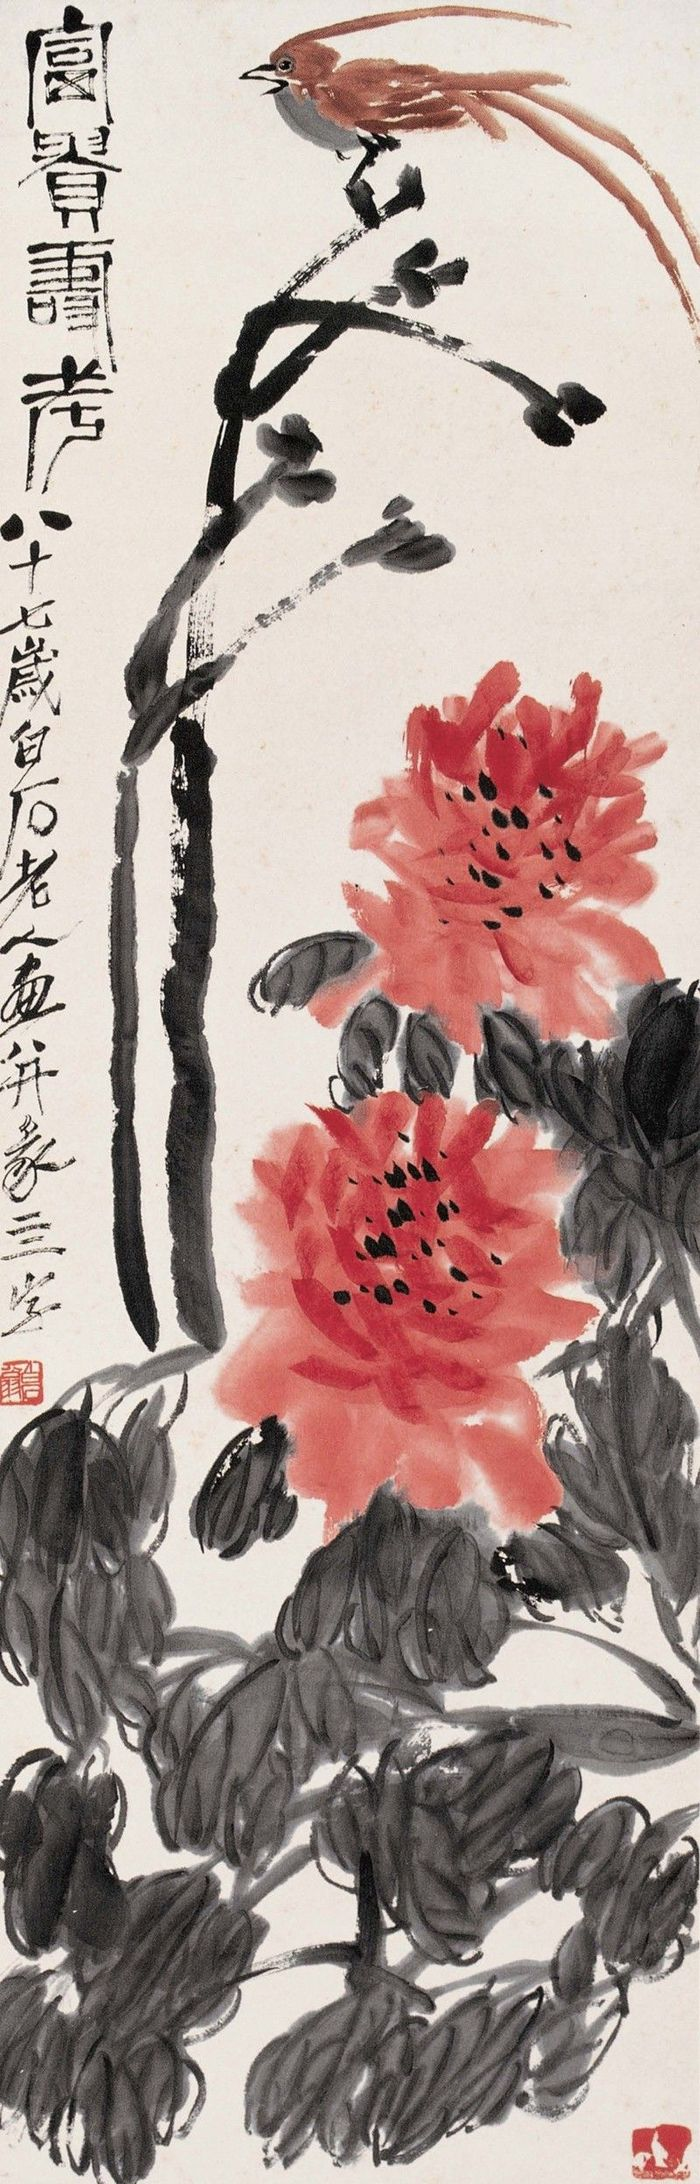 富貴壽考八十七歲白石老人画并篆三字